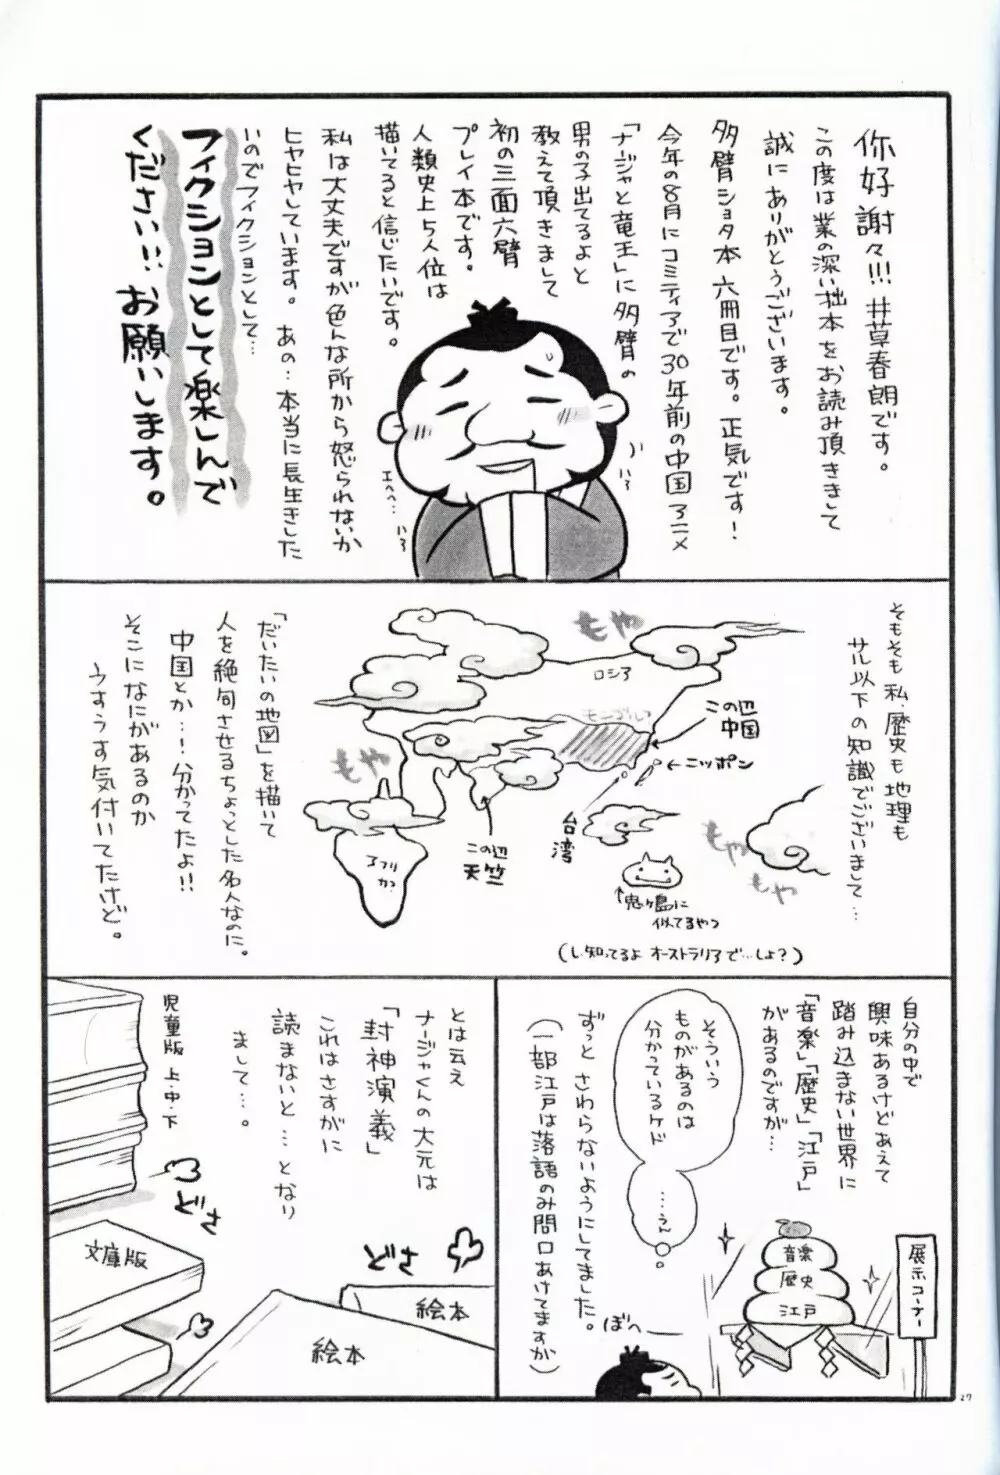 你好謝々!!!井草春朗です。
この度は業の深い拙本をお読み頂きまして
誠にありがとうございます。
多臂ショタ本六冊目です。正気です!
今年の8月にコミティアで30年前の中国アニメ
「ナージャと竜王」に多臂の
男の子出てるよと
教えて頂きまして
初の三面六臂
プレイ本です。
人類史上5人位は
描いてると信じたいです。
私は大丈夫ですが色んな所から怒られないか
ヒヤヒヤしています。あの…本当に長生きした
いのでフィクションとして…
フィクションとして楽しんで
ください!!お願いします。
いろ
エヘヘ…
いろ
そもそも私、歴史も地理も
サル以下の知識でございまして…
もや
ロシア
モンゴル?
この辺
中国
←ニッポン
台湾
この辺
天竺
アフリカ
もや
もや
もや
↑鬼ヶ島に
似てるやつ
(し、知ってるよ オーストラリアで…しょ?)
「だいたいの地図」を描いて
人を絶句させるちょっとした名人なのに。
中国とか…!分かってたよ!!
そこになにがあるのか
うすうす気付いてたけど。
自分の中で
興味あるけどあえて
踏み込まない世界に
「音楽」「歴史」「江戸」
があるのですが…
そういう
ものがあるのは
分かっているケド
……うん
ずっとさわらないようにしてました。
(一部江戸は落語のみ間口あけてますが)
展示コーナー
音楽
歴史
江戸
ぼへー
とは云え
ナージャくんの大元は
「封神演義」
これはさすがに
読まないと…となり
まして…。
児童版 上・中・下
どさ
文庫版
どさ
絵本
絵本
27